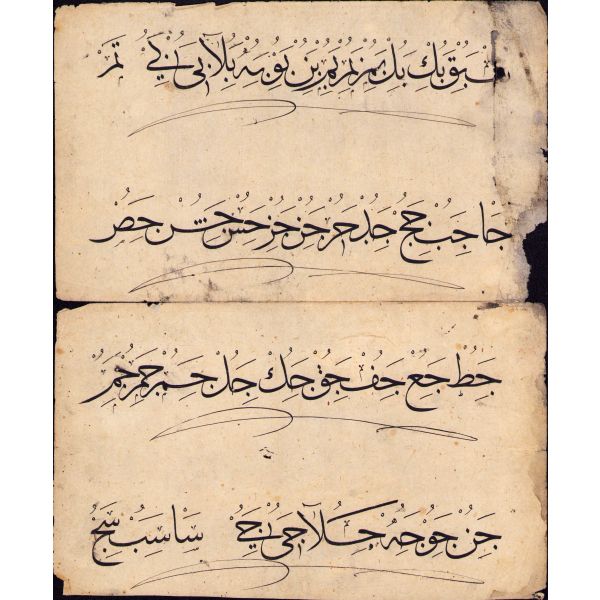 بق بك بل بم بمر بن بو به بلا بى بي تم
جا جب جج جد جر جس جص
جط جع جف جق جك جل جم جمر
جن جو جه جلا جى جي سا سب سج